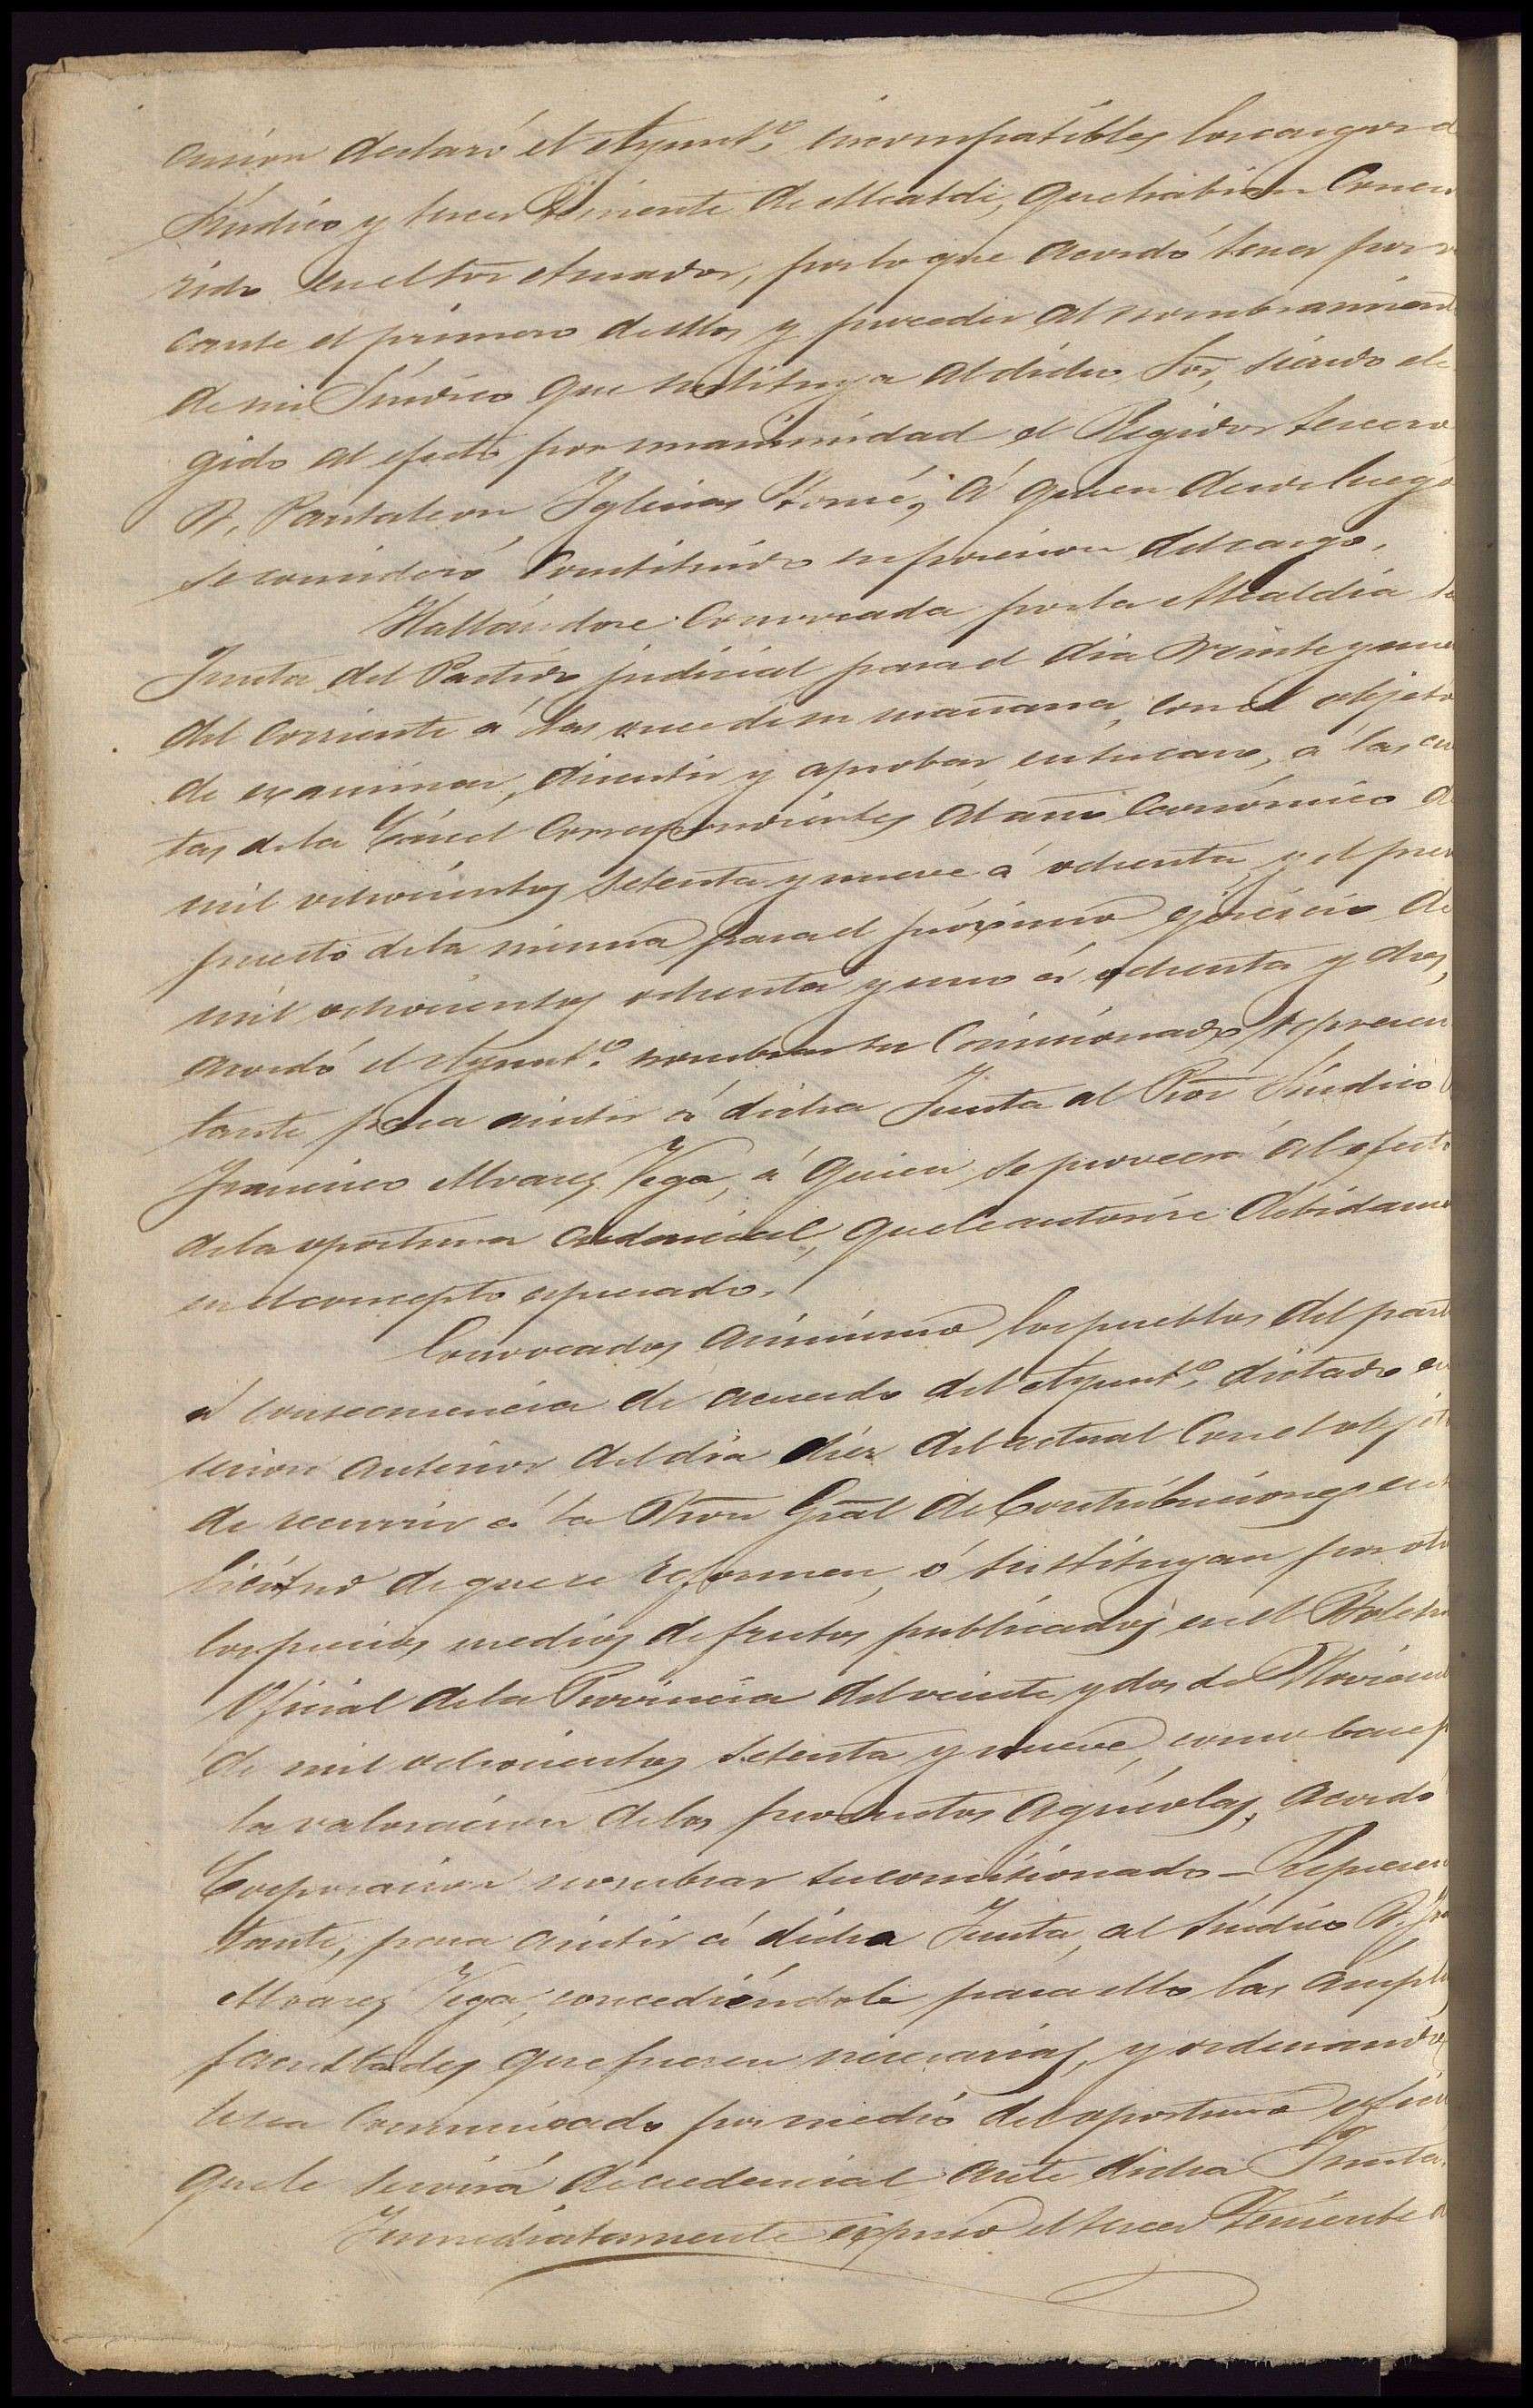 cusion declaró el Ayunt.º incompatibles los cargos d
Síndico y tercer Teniente de Alcalde, que habian concu
rido en el Sor Amador, por lo que acordó tener por v
cante el primero de ellos y proceder al nombramient
de un Síndico que sustituya al dicho Sor, siendo ele
gido al efecto por unanimidad el Regidor tercero
D. Pantaleon Iglesias Tomé, á quien desde luego
se consideró constituido en posesion del cargo.
Hallándose convocada por la Alcaldia la
Junta del Partido judicial para el dia veinte y nue
del corriente á las once de su mañana, con el objeto
de examinar, discutir y aprobar, en su caso, á las cu
tas de la Cárcel correspondientes al año económico d
mil ochocientos setenta y nueve á ochenta, y el presu
puesto de la misma para el próximo ejercicio de
mil ochocientos ochenta y uno á ochenta y dos,
acordó el Ayunt.º nombrar su Comisionado represen
tante para asistir á dicha Junta al Sor Síndico
Francisco Alvarez Vega, á quien se proveerá al efecto
de la oportuna credencial, que le autorice debidame
en el concepto espresado.
Convocados asimismo los pueblos del part
á consecuencia de acuerdo del Ayunt.º dictado en
sesion anterior del dia diez del actual con el objeto
de recurrir á la Dion Gral de Contribuciones en s
licitud de que se reformen, ó sustituyan por otr
los precios medios de frutos publicados en el Boletin
Oficial de la Provincia del veinte y dos de Noviemb
de mil ochocientos setenta y nueve, como base p
la valoracion de los productos agrícolas, acordó
Corporacion nombrar su comisionado - Represen
tante, para asistir á dicha Junta, al Síndico D. Fra
Alvarez Vega, concediéndole para ello las ampli
facultades que fueren necesarias, y ordenando
le sea comunicado por medio del oportuno ofici
que le servirá de credencial ante dicha Junta.
Inmediatamente espuso el tercer Teniente d